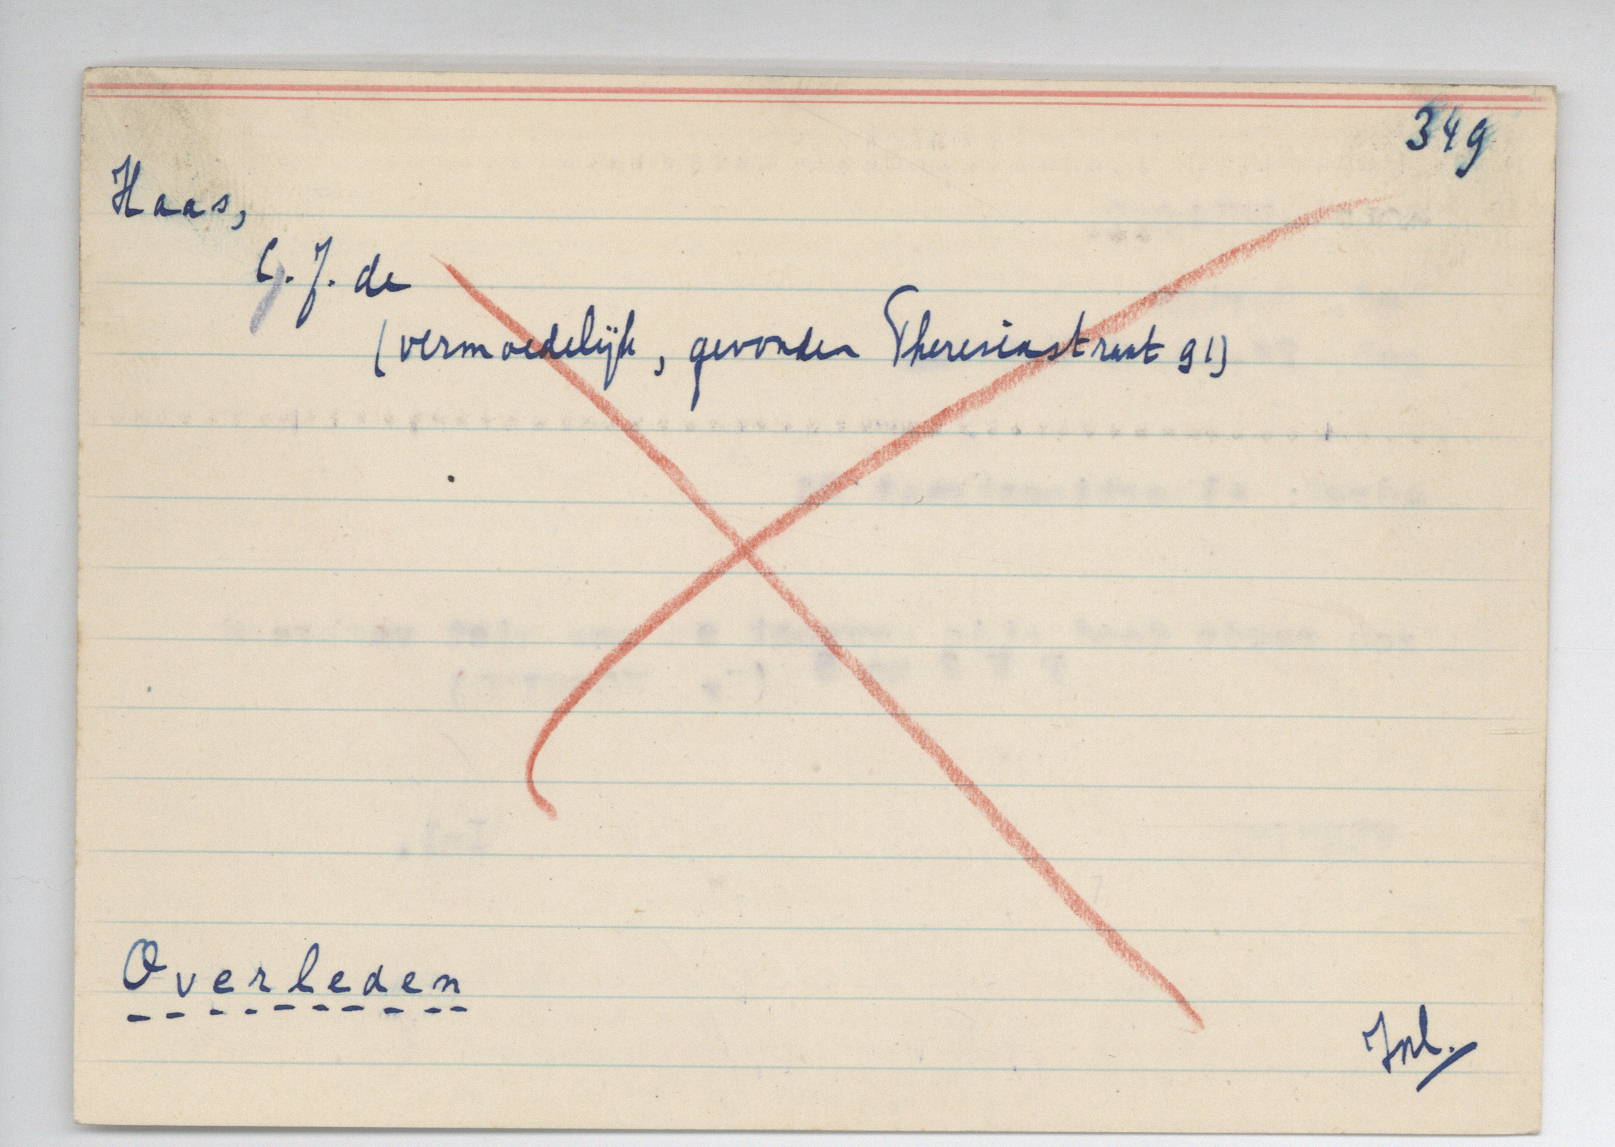 349
Haas,
C. J. de
(vermoedelijk, gevonden Theresiastraat 91)
Overleden
Inl.